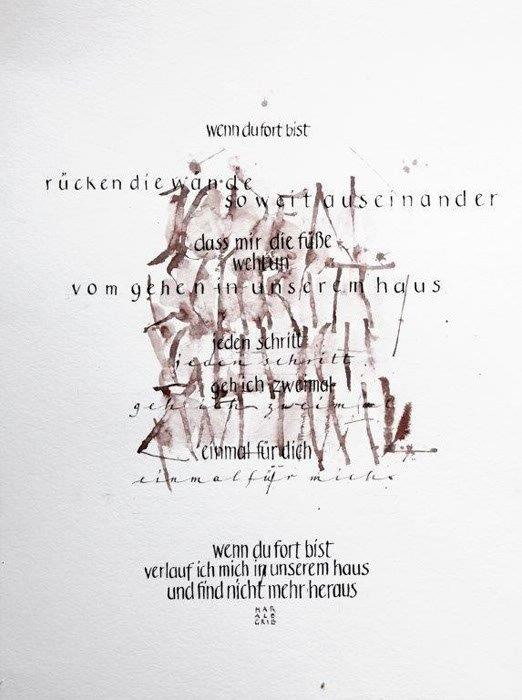 wenn du fort bist
rücken die wände
so weit auseinander
dass mir die füße
wehtun
vom gehen in unserem haus
jeden schritt
jeden schritt
geh ich zweimal
geh ich zweimal
einmal für dich
einmal für mich
wenn du fort bist
verlauf ich mich in unserem haus
und find nicht mehr heraus
HAR
ALD
GRIB